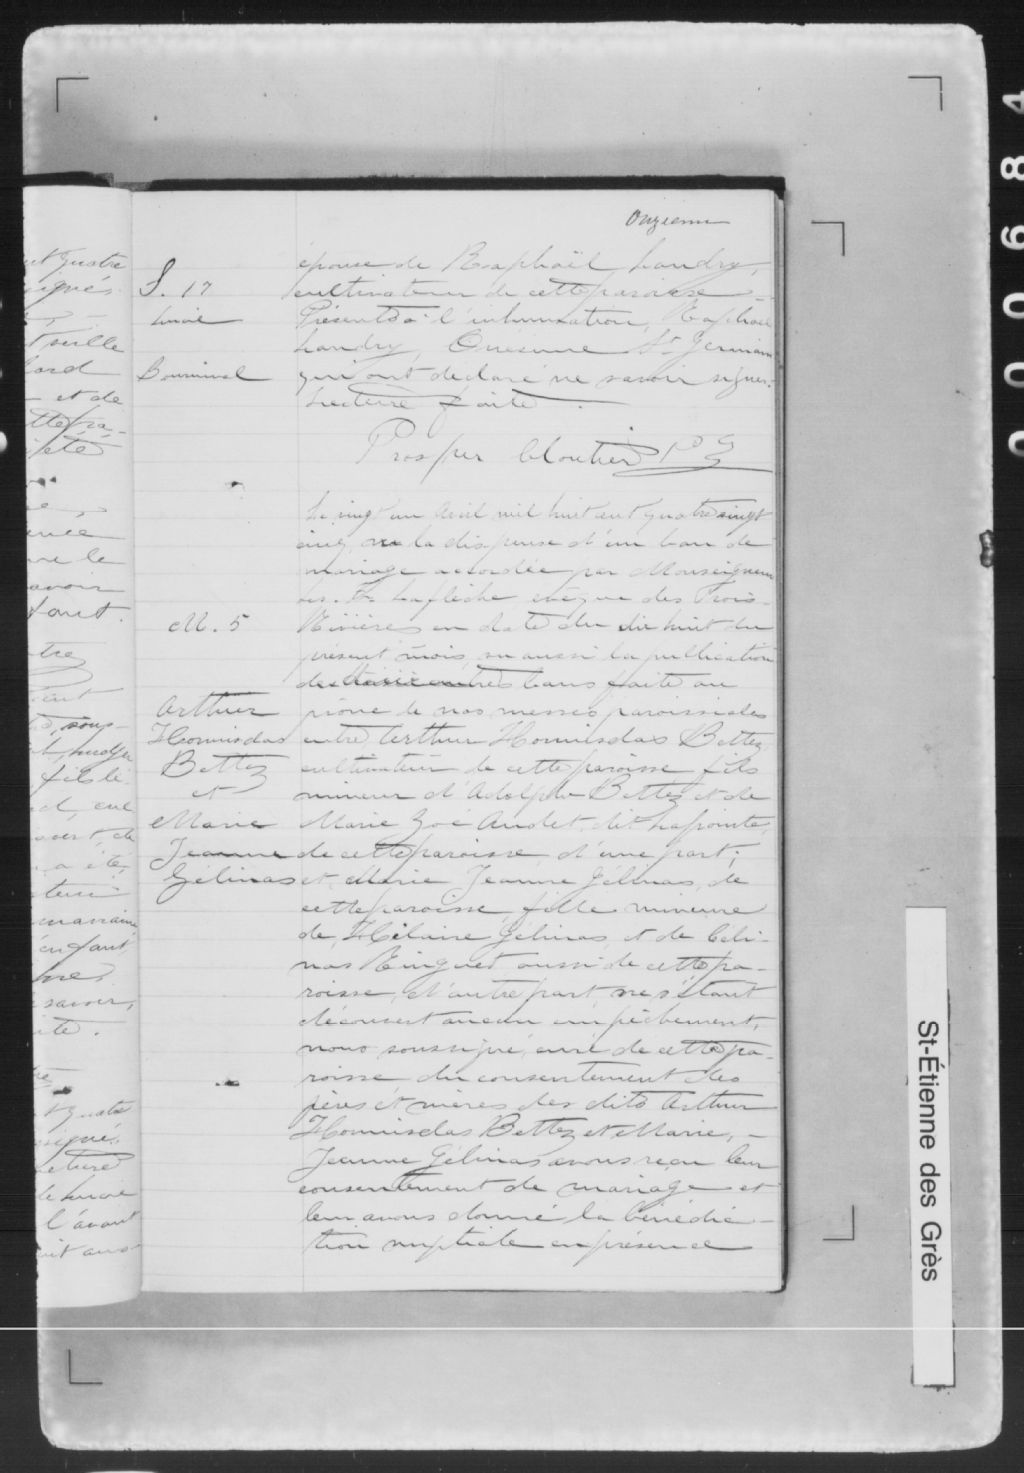 Onzieme
épouse de Raphaël Landry,
cultivateur de cette paroisse
Présents à l'inhumation, Raphaël
Landry, Onésime St Germain
qui ont declaré ne savoir signer.
Lecture faite.
Prosper Cloutier Ptre
S. 17
Lucie
Bournival
Le vingt un Avril mil huit cent quatre vingt
cinq, vu la dispense d'un ban de
mariage accordée par Monseigneur
Ls. F. Laflèche, evêque des Trois-
Rivières en date du dix huit du
présent mois, vu aussi la publication
des autres bans faite au
prône de nos messes paroissiales
entre Arthur Hormisdas Bettez
cultivateur de cette paroisse fils
mineur d'Adolphe Bettez et de
Marie Zoé Audet dit Lapointe,
de cette paroisse, d'une part;
et Marie Jeanne Gélinas, de
cette paroisse, fille mineure
de Hilaire Gélinas, et de Céli-
nas Ringuet aussi de cette pa-
roisse, d'autre part, ne s'étant
découvert aucun empêchement,
nous soussigné, curé de cette pa-
roisse du consentement des
pères et mères des dits Arthur
Hormisdas Bettez et Marie,
Jeanne Gélinas avons reçu leur
consentement de mariage et
leur avons donné la bénédic-
tion nuptiale en présence
M. 5
Arthur
Hormisdas
Bettez
et
Marie
Jeanne
Gélinas
quatre
et de
été
avoir
marraine
enfant,
savoir,
l'avant
St-Étienne des Grès
000684